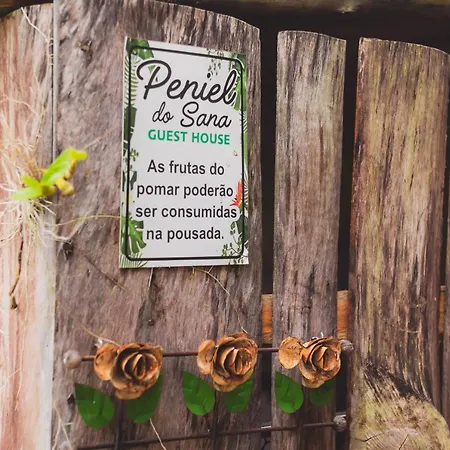 Peniel
do Sana
GUEST HOUSE
As frutas do
pomar poderão
ser consumidas
na pousada.